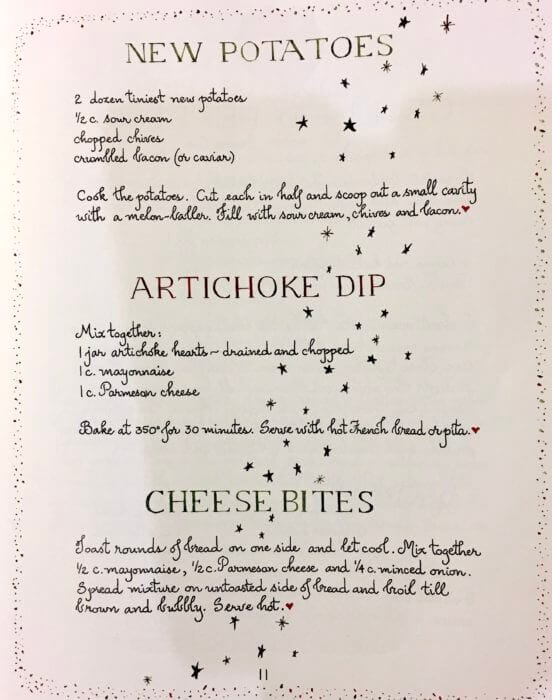 NEW POTATOES
2 dozen tiniest new potatoes
1/2 c. sour cream
chopped chives
crumbled bacon (or caviar)
Cook the potatoes. Cut each in half and scoop out a small cavity
with a melon-baller. Fill with sour cream, chives and bacon.♥
ARTICHOKE DIP
Mix together:
1 jar artichoke hearts ~ drained and chopped
1 c. mayonnaise
1 c. Parmesan cheese
Bake at 350° for 30 minutes. Serve with hot French bread or pita.♥
CHEESE BITES
Toast rounds of bread on one side and let cool. Mix together
1/2 c. mayonnaise, 1/2 c. Parmesan cheese and 1/4 c. minced onion.
Spread mixture on untoasted side of bread and broil till
brown and bubbly. Serve hot.♥
11